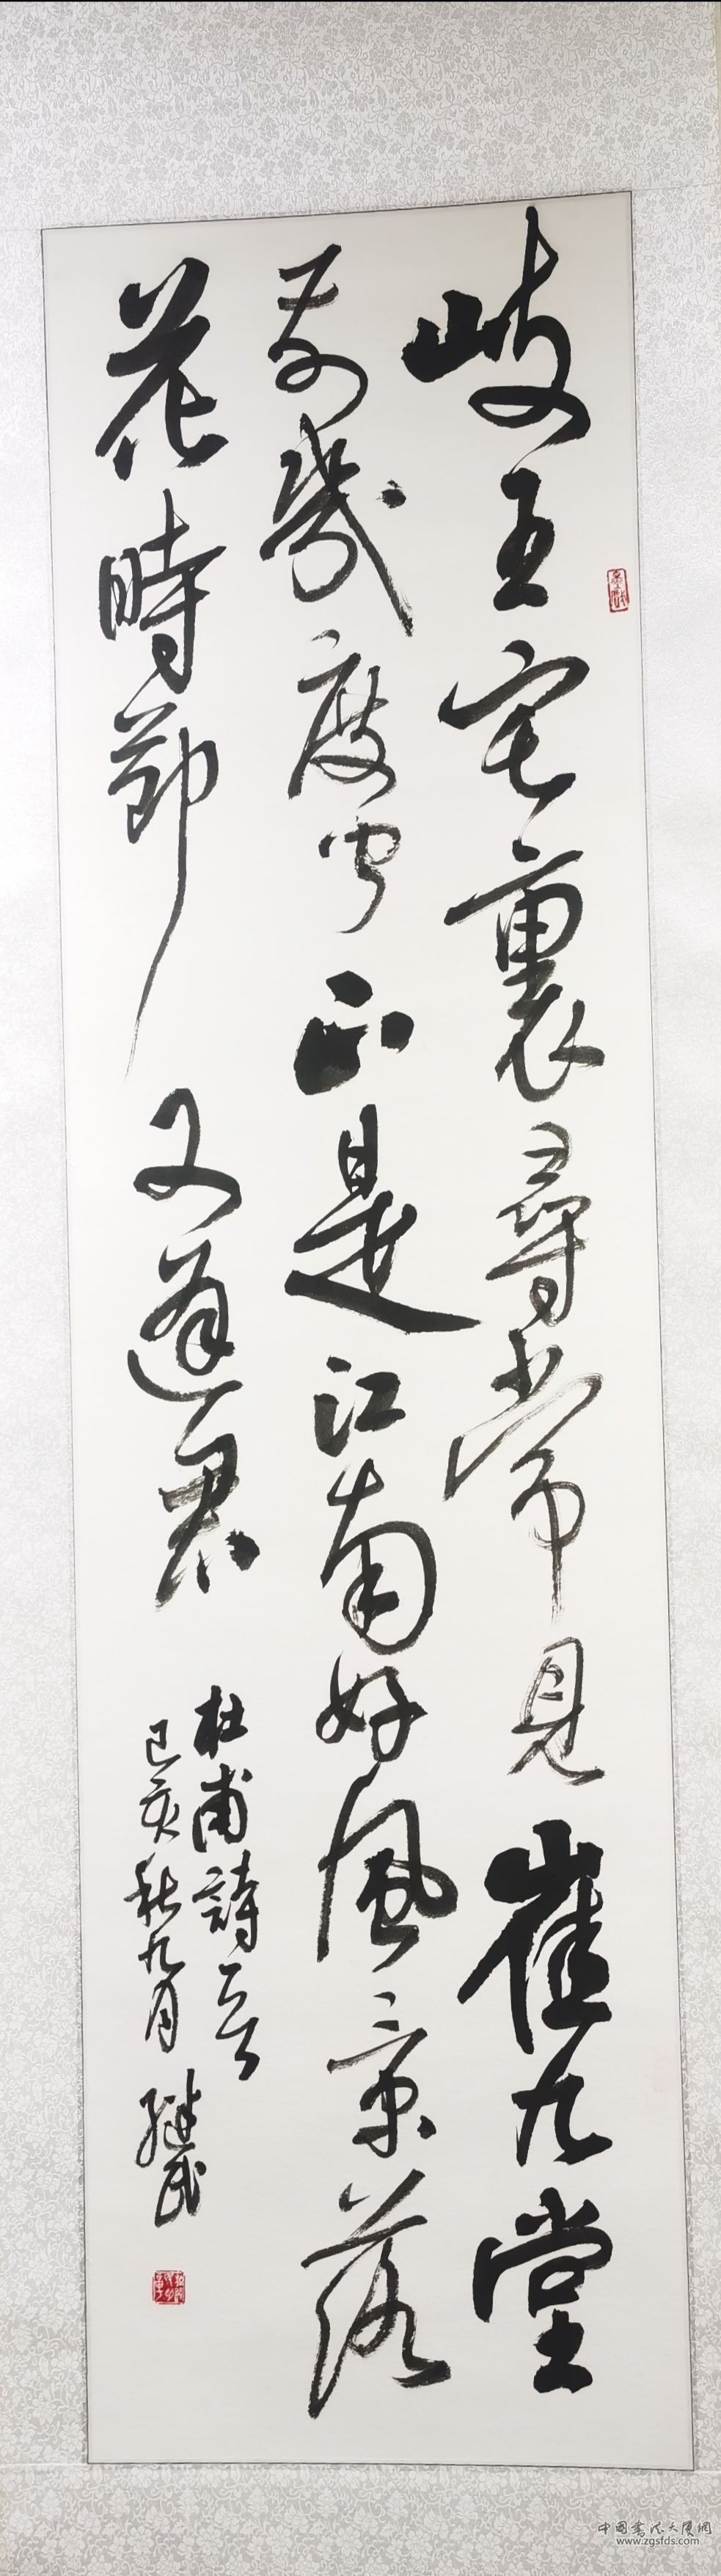 岐王宅裏尋常見崔九堂
前幾度聞正是江南好風景落
花時節又逢君
杜甫詩一首
己亥秋九月 继民
中国書法大厦網
www.zgsfds.com